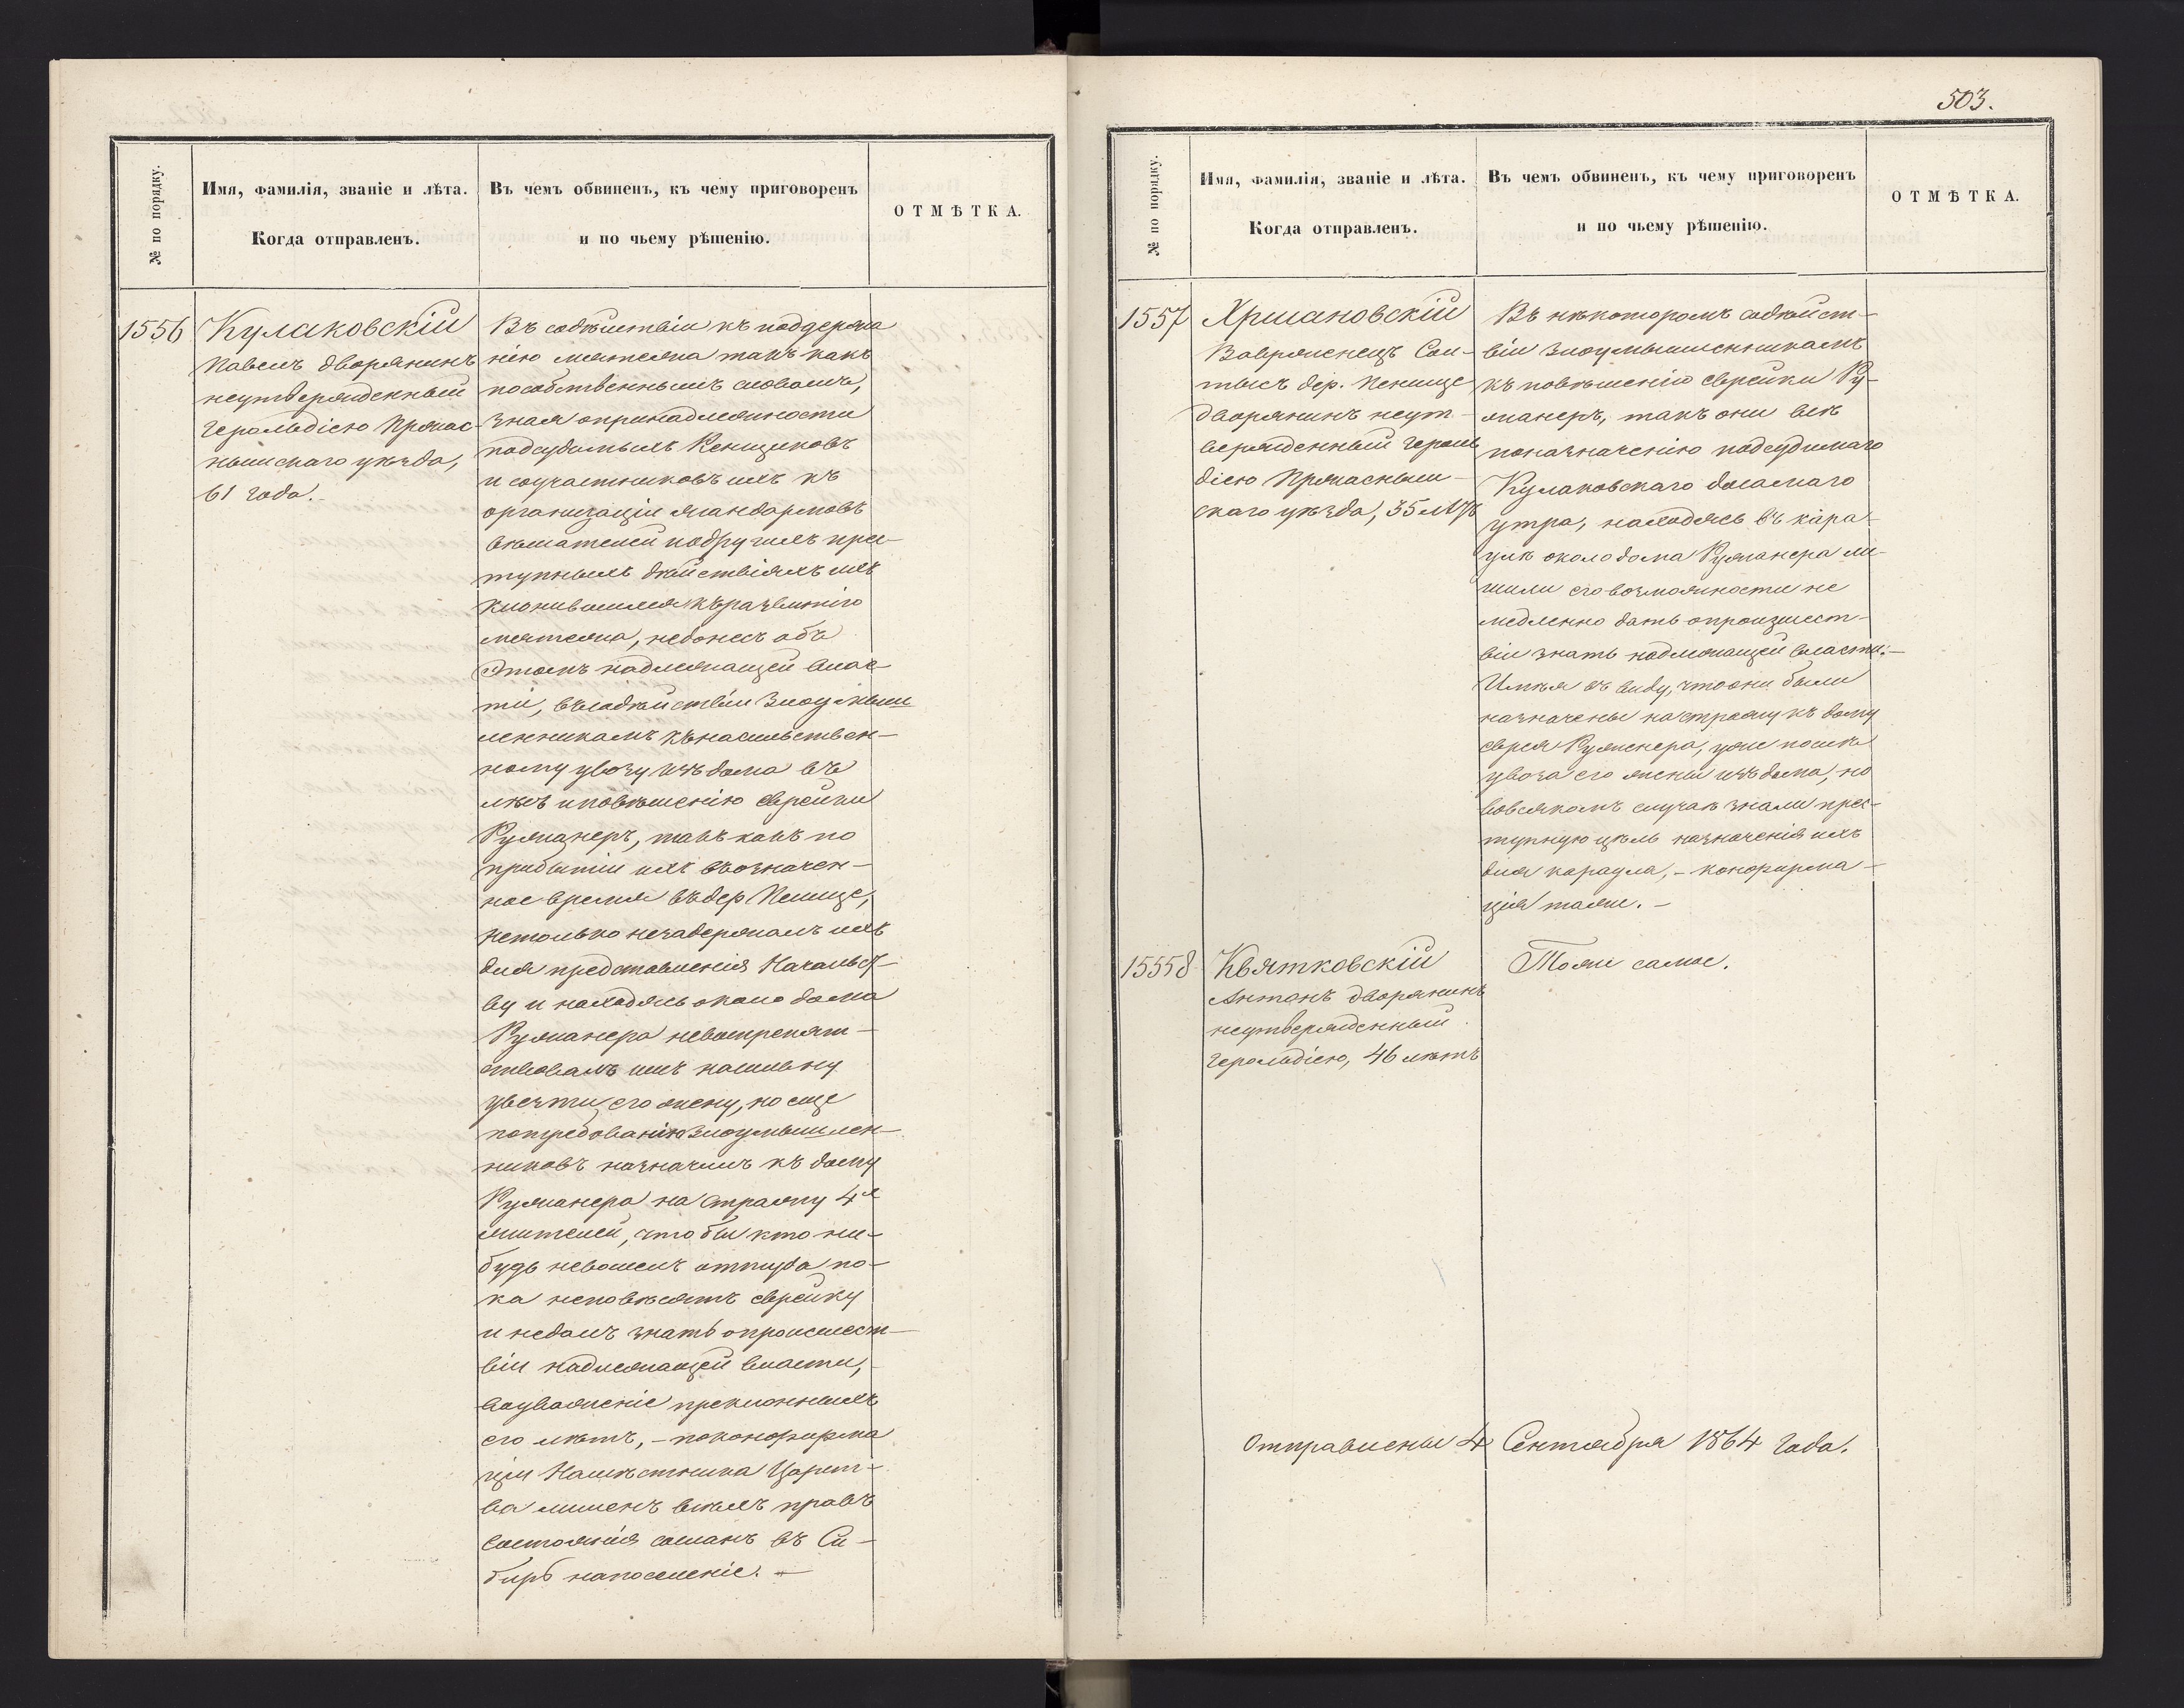 № по порядку.
Имя, фамилія, званіе и лѣта.
Когда отправленъ.
Въ чемъ обвиненъ, къ чему приговоренъ
и по чьему рѣшенію.
ОТМѢТКА.
1556
Кулаковскій
Павелъ дворянинъ
неутвержденный
Герольдіею Праснышскаго уѣзда,
61 года.
Въ содѣйствіи къ поддержа
нію мятежа такъ какъ
пособственнымъ словамъ,
зная опринадлежности
подсудимыхъ Ксенщиковъ
и соучастниковъ ихъ къ
организаціи жандармовъ
вѣшателей и другихъ прес-
тупныхъ дѣйствіяхъ ихъ
клонившихся къ развитію
мятежа, недонесъ объ
этомъ надлежащей влас-
ти, въсодѣйствіи злоумыш
ленникамъ къ насильствен-
ному увозу изъ дома въ
лѣсъ и повѣшенію еврейки
Ружанеръ, такъ какъ по
прибытіи ихъ въ означен-
ное время въ дер Пенице,
нетолько незадержалъ ихъ
для представленія Начальст-
ву и находясь около дома
Ружанера невоспрепят-
ствовалъ имъ насильну
увезти его жену, но еще
потребованію злоумышлен-
никовъ назначилъ къ дому
Ружанера на стражу 4х
жителей, что бы кто ни-
будь невошелъ оттуда по-
ка неповѣсятъ еврейку
и недалъ знать опроисшест-
віи надлежащей власти,
воуваженіе преклонныхъ
его лѣтъ, - поконфирма
ціи Намѣстника Царст-
ва лишенъ всѣхъ правъ
состоянія сосланъ въ Си-
бирь на поселеніе. -
503.
№ по порядку.
Имя, фамилія, званіе и лѣта.
Когда отправленъ.
Въ чемъ обвиненъ, къ чему приговоренъ
и по чьему рѣшенію.
ОТМѢТКА.
1557
Хршановскій
Вавржинецъ Сол-
тысъ дер. Пенице
дворянинъ неут-
вержденный Героль
діею Прасныш-
скаго уѣзда, 35 лѣтъ
Въ нѣкоторомъ содѣйст-
віи злоумышленникамъ
къ повѣшенію еврейки Ру-
жанеръ, такъ они всѣ
поназначенію подсудимаго
Кулаковскаго досамаго
утра, находясь въ кара-
улѣ около дома Ружанера ли-
шили его возможности не
медленно дать опроизшест-
віи знать надлежащей власти:-
Имѣя въ виду, что они были
назначены на стражу къ дому
еврея Руженера, уже послѣ
увоза его жены изъ дома, но
вовсякомъ случаѣ знали прес-
тупную цѣль назначенія ихъ
для караула, - конфирма-
ція таже. -
15558
Квятковскій
Антонъ дворянинъ
неутвержденный
Герольдіею, 46 лѣтъ
Тоже самое.
Отправлены 4 Сентября 1864 года.